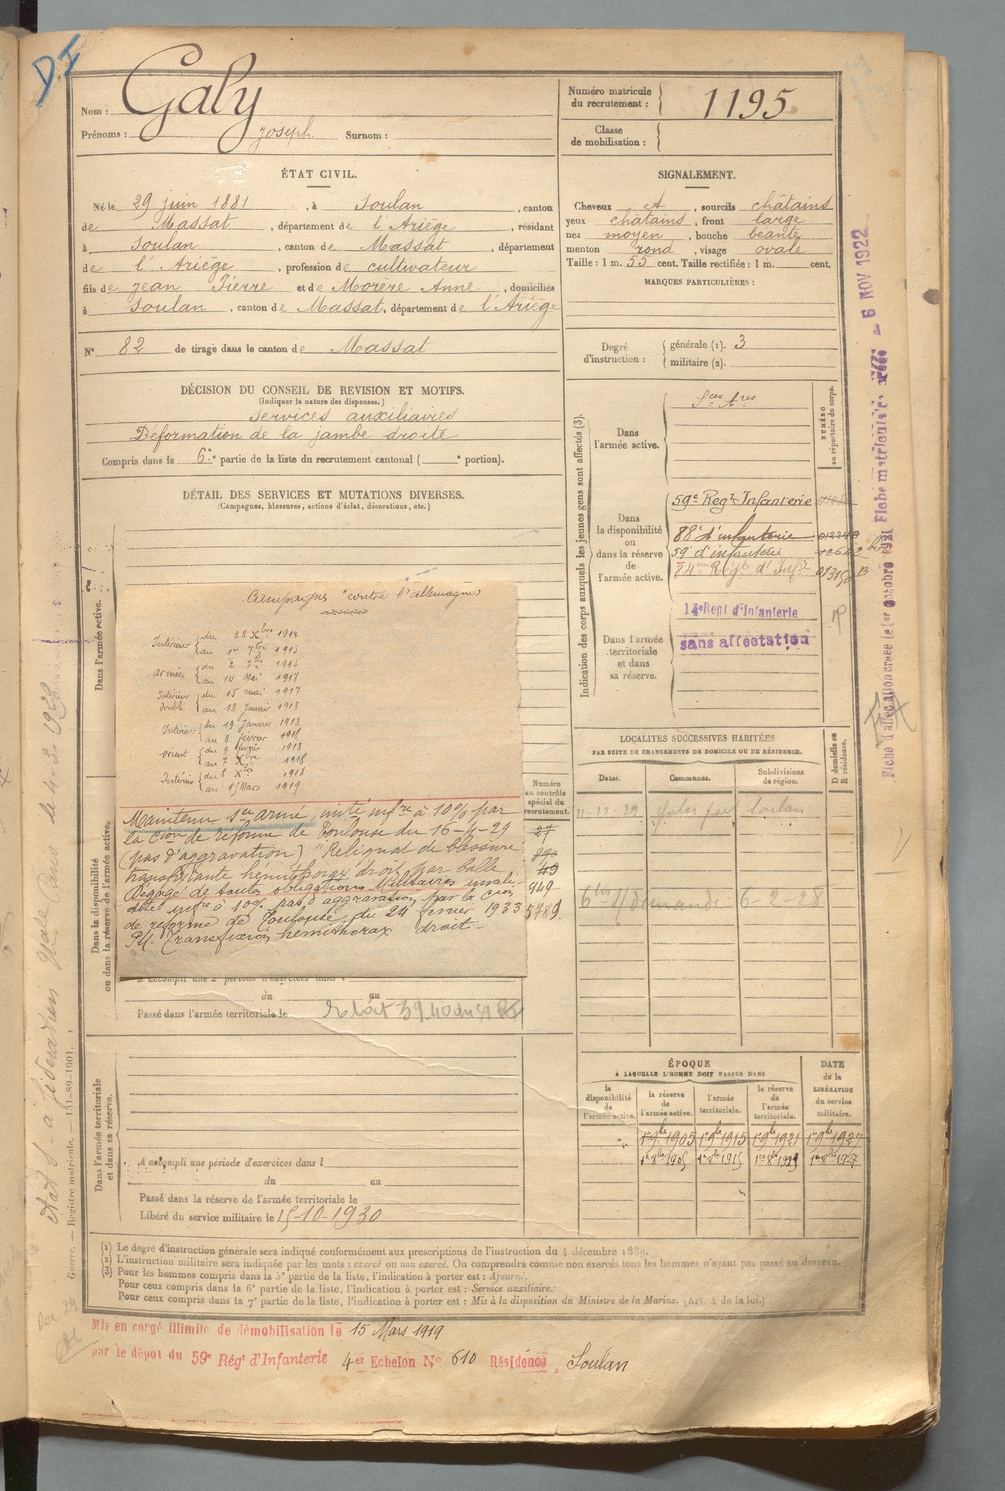 DI
Nom : Galy
Prénoms : Joseph Surnom :
Numéro matricule du recrutement : 1195
Classe de mobilisation :
ÉTAT CIVIL.
Né le 29 juin 1881, à Soulan, canton
de Massat, département de l'Ariége, résidant
à Soulan, canton de Massat, département
de l'Ariége, profession de cultivateur
fils de Jean Pierre et de Morère Anne, domiciliés
à Soulan, canton de Massat, département de l'Ariége
N° 82 de tirage dans le canton de Massat
SIGNALEMENT.
Cheveux et, sourcils châtains
yeux châtains, front large
nez moyen, bouche béante
menton rond, visage ovale
Taille : 1 m. 55 cent. Taille rectifiée : 1 m. cent.
MARQUES PARTICULIÈRES :
Degré d'instruction : générale (1). 3
militaire (2).
DÉCISION DU CONSEIL DE REVISION ET MOTIFS.
(Indiquer la nature des dispenses.)
Services auxiliaires
Déformation de la jambe droite
Compris dans la 6e partie de la liste du recrutement cantonal ( e portion).
DÉTAIL DES SERVICES ET MUTATIONS DIVERSES.
(Campagnes, blessures, actions d'éclat, décorations, etc.)
Dans l'armée active.
Campagnes "contre l'allemagne"
Intérieur du 28 Xbre 1914
au 1er 7bre 1915
armées du 2 7bre 1915
au 14 Mai 1917
Intérieur du 15 mai 1917
double au 18 Janvier 1918
Intérieur du 19 Janvier 1918
au 8 février 1918
orient du 9 février 1918
au 7 Xbre 1918
Intérieur du 8 Xbre 1918
au 15 Mars 1919
Maintenu sce armé, invté infre à 10% par
la cion de réforme de Toulouse du 16-4-29
(pas d'aggravation) "Reliquat de blessure
transfixiante hémithorax droit par balle
Dégagé de toutes obligations Militaires invali-
dité infre à 10% pas d'aggravation par la cion
de réforme de Toulouse du 24 fevrier 1933
P.M. Transfixion hémithorax droit.
Dans la disponibilité ou dans la réserve de l'armée active.
A accompli une 2e période d'exercices dans l
du au
Passé dans l'armée territoriale le
Numéro au contrôle spécial du recrutement.
27
49
949
5789
Indication des corps auxquels les jeunes gens sont affectés (3).
NUMÉRO au répertoire du corps.
Dans l'armée active.
Sces Ares
Dans la disponibilité ou dans la réserve de l'armée active.
59e Regt Infanterie
88e d'infanterie
59 d'infanterie
Dans l'armée territoriale et dans sa réserve.
14e Regt d'Infanterie
sans affectation
Fiche matricule
6 NOV 1922
LOCALITÉS SUCCESSIVES HABITÉES
PAR SUITE DE CHANGEMENTS DE DOMICILE OU DE RÉSIDENCE.
Dates. Communes. Subdivisions de région. D domicile ou R résidence.
Soulan
6-2-28
ÉPOQUE
À LAQUELLE L'HOMME DOIT PASSER DANS
DATE de la LIBÉRATION du service militaire.
la disponibilité de l'armée active.
la réserve de l'armée active.
l'armée territoriale.
la réserve de l'armée territoriale.
1er 9bre 1905 1er 9bre 1915 1er 9bre 1921 1er 9bre 1927
Dans l'armée territoriale et dans sa réserve.
A accompli une période d'exercices dans l
du au
Passé dans la réserve de l'armée territoriale le
Libéré du service militaire le 15-10-1930
Guerre. — Registre matricule. 131-89-1901.
(1) Le degré d'instruction générale sera indiqué conformément aux prescriptions de l'instruction du 4 décembre 1889.
(2) L'instruction militaire sera indiquée par les mots : exercé ou non exercé. On comprendra comme non exercés tous les hommes n'ayant pas passé au drapeau.
(3) Pour les hommes compris dans la 5e partie de la liste, l'indication à porter est : Ajourné.
Pour ceux compris dans la 6e partie de la liste, l'indication à porter est : Service auxiliaire.
Pour ceux compris dans la 7e partie de la liste, l'indication à porter est : Mis à la disposition du Ministre de la Marine. (Art. 4 de la loi.)
Mis en congé illimité de démobilisation le 15 Mars 1919
par le dépot du 59e Régt d'Infanterie 4er Echelon No 610 Résidence Soulan